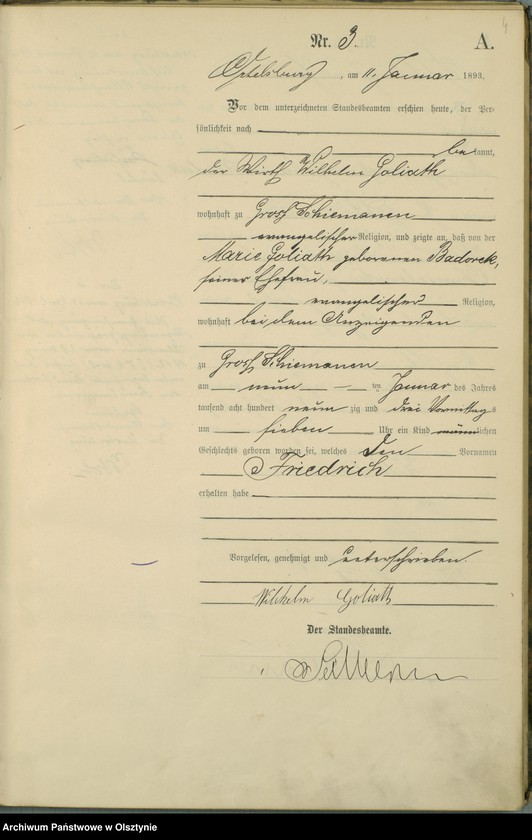 4
Nr. 3. A.
Ortelsburg, am 11. Januar 1893.
Vor dem unterzeichneten Standesbeamten erschien heute, der Per-
sönlichkeit nach
bekannt,
der Wirth Wilhelm Goliath
wohnhaft zu Groß Schiemanen
evangelischer Religion, und zeigte an, daß von der
Marie Goliath geborenen Badorek,
seiner Ehefrau,
evangelischer Religion,
wohnhaft bei dem Anzeigenden
zu Groß Schiemanen
am neun ten Januar des Jahres
tausend acht hundert neun zig und drei Vormittags
um sieben Uhr ein Kind männlichen
Geschlechts geboren worden sei, welches den Vornamen
Friedrich
erhalten habe
Vorgelesen, genehmigt und unterschrieben.
Wilhelm Goliath
Der Standesbeamte.
Archiwum Państwowe w Olsztynie